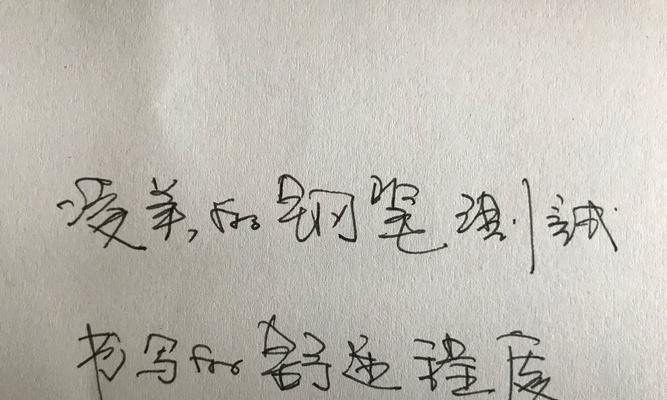 凌美的钢笔测試
书写的舒适程度